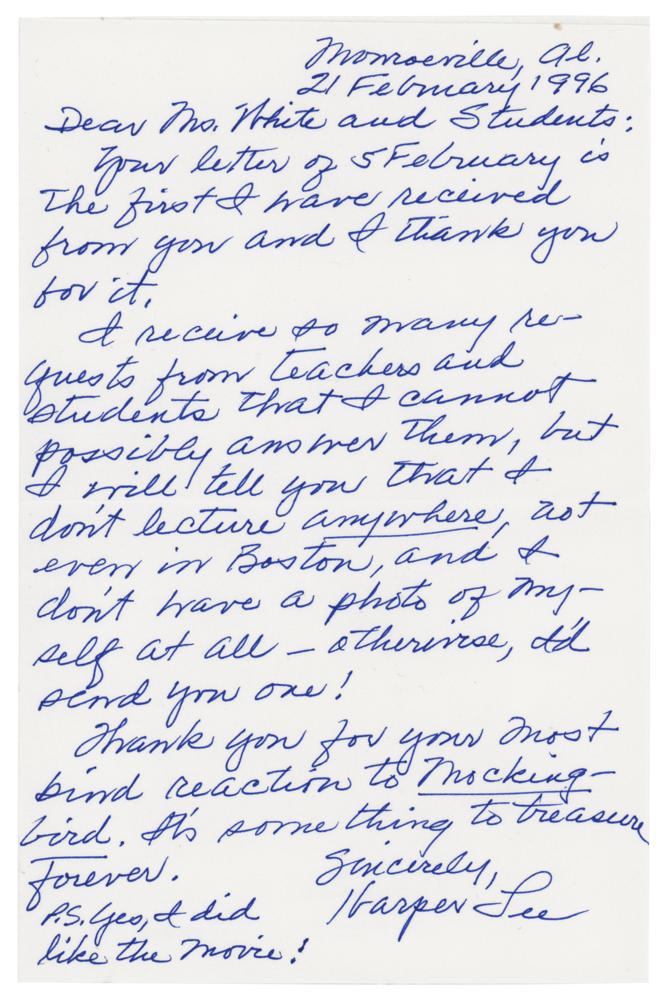 Monroeville, Al.
21 February 1996
Dear Ms. White and Students:
Your letter of 5 February is
the first I have received
from you and I thank you
for it.
I receive so many re-
quests from teachers and
students that I cannot
possibly answer them, but
I will tell you that I
don't lecture anywhere, not
even in Boston, and I
don't have a photo of my-
self at all — otherwise, I'd
send you one!
Thank you for your most
kind reaction to Mocking-
bird. It's something to treasure
forever.
Sincerely,
Harper Lee
P.S. Yes, I did
like the movie!